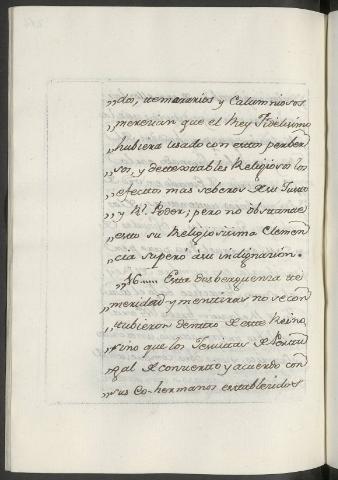 „dos, temerarios y Calumniosos
„merecian que el Rey Fidelisimo
„hubiera usado con estos perber
„sos, y detestables Religiosos los
„efectos mas seberos de su Justo
„y Rl. Poder; pero no obstante
„esto su Religiosisima Clemen
„cia superó á su indignacion.
„46..... Esta desberguenza te
„meridad y mentiras no se con
„tubieron dentro de este Reino
„sino que los Jesuitas de Portu
„gal de convenio y acuerdo con
„sus Co-hermanos establecidos